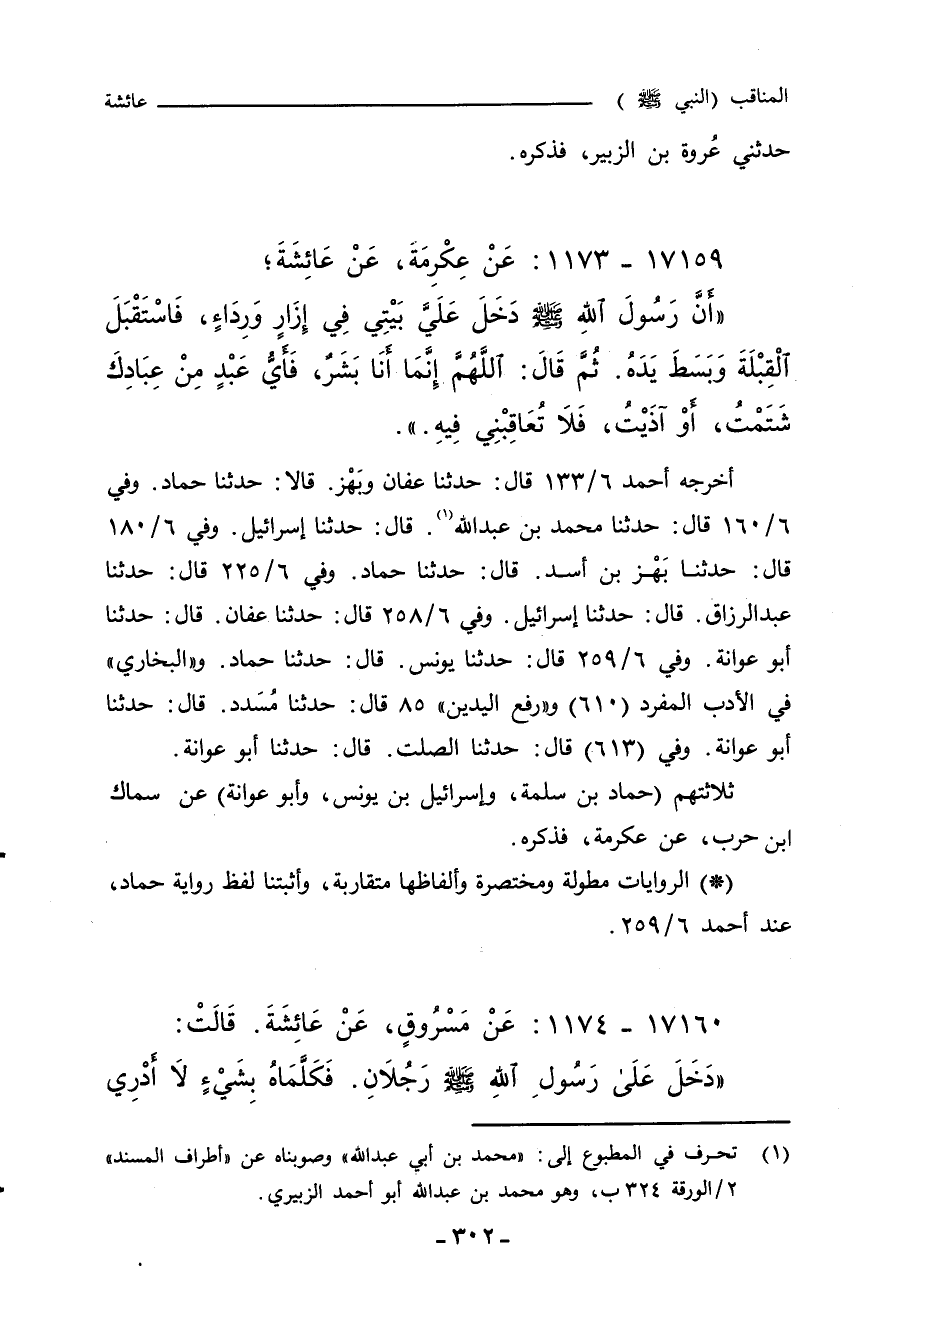 المناقب (النبي ﷺ ) ــــــــــــــــــــــــ عائشة
حدثني عُروة بن الزبير، فذكره.
١٧١٥٩ - ١١٧٣: عَنْ عِكْرِمَةَ، عَنْ عَائِشَةَ؛
«أَنَّ رَسُولَ ٱللهِ ﷺ دَخَلَ عَلَيَّ بَيْتِي فِي إِزَارٍ وَرِدَاءٍ، فَاسْتَقْبَلَ
ٱلْقِبْلَةَ وَبَسَطَ يَدَهُ. ثُمَّ قَالَ: ٱللَّهُمَّ إِنَّمَا أَنَا بَشَرٌ، فَأَيُّ عَبْدٍ مِنْ عِبَادِكَ
شَتَمْتُ، أَوْ آذَيْتُ، فَلَا تُعَاقِبْنِي فِيهِ.».
أخرجه أحمد ١٣٣/٦ قال: حدثنا عفان وبَهْز. قالا: حدثنا حماد. وفي
١٦٠/٦ قال: حدثنا محمد بن عبدالله(١). قال: حدثنا إسرائيل. وفي ١٨٠/٦
قال: حدثنـا بَهْـز بن أسـد. قال: حدثنا حماد. وفي ٢٢٥/٦ قال: حدثنا
عبدالرزاق. قال: حدثنا إسرائيل. وفي ٢٥٨/٦ قال: حدثنا عفان. قال: حدثنا
أبو عوانة. وفي ٢٥٩/٦ قال: حدثنا يونس. قال: حدثنا حماد. و«البخاري»
في الأدب المفرد (٦١٠) و«رفع اليدين» ٨٥ قال: حدثنا مُسَدد. قال: حدثنا
أبو عوانة. وفي (٦١٣) قال: حدثنا الصلت. قال: حدثنا أبو عوانة.
ثلاثتهم (حماد بن سلمة، وإسرائيل بن يونس، وأبو عوانة) عن سماك
ابن حرب، عن عكرمة، فذكره.
(*) الروايات مطولة ومختصرة وألفاظها متقاربة، وأثبتنا لفظ رواية حماد،
عند أحمد ٢٥٩/٦.
١٧١٦٠ - ١١٧٤: عَنْ مَسْرُوقٍ، عَنْ عَائِشَةَ. قَالَتْ:
«دَخَلَ عَلَىٰ رَسُولِ ٱللهِ ﷺ رَجُلَانِ. فَكَلَّمَاهُ بِشَيْءٍ لَا أَدْرِي
(١) تحـرف في المطبوع إلى: «محمد بن أبي عبدالله» وصوبناه عن «أطراف المسند»
٢/الورقة ٣٢٤ب، وهو محمد بن عبدالله أبو أحمد الزبيري.
- ٣٠٢ -